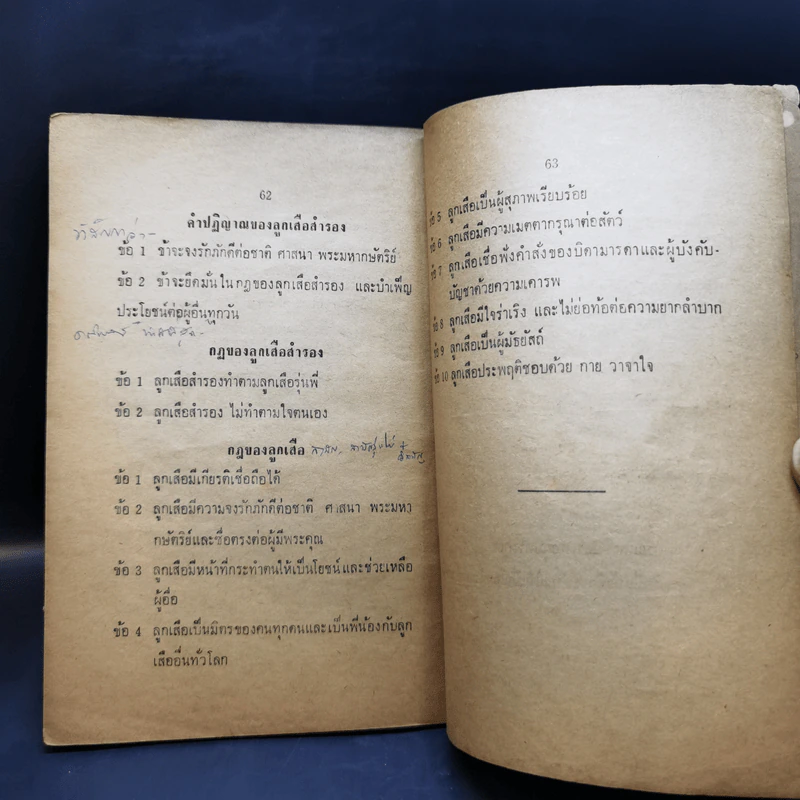 62
คำปฏิญาณของลูกเสือสำรอง
ข้อ 1 ข้าจะจงรักภักดีต่อชาติ ศาสนา พระมหากษัตริย์
ข้อ 2 ข้าจะยึดมั่นในกฎของลูกเสือสำรอง และบำเพ็ญ
ประโยชน์ต่อผู้อื่นทุกวัน
กฎของลูกเสือสำรอง
ข้อ 1 ลูกเสือสำรองทำตามลูกเสือรุ่นพี่
ข้อ 2 ลูกเสือสำรอง ไม่ทำตามใจตนเอง
กฎของลูกเสือ
ข้อ 1 ลูกเสือมีเกียรติเชื่อถือได้
ข้อ 2 ลูกเสือมีความจงรักภักดีต่อชาติ ศาสนา พระมหา
กษัตริย์และซื่อตรงต่อผู้มีพระคุณ
ข้อ 3 ลูกเสือมีหน้าที่กระทำตนให้เป็นโยชน์และช่วยเหลือ
ผู้อื่อ
ข้อ 4 ลูกเสือเป็นมิตรของคนทุกคนและเป็นพี่น้องกับลูก
เสืออื่นทั่วโลก
63
ข้อ 5 ลูกเสือเป็นผู้สุภาพเรียบร้อย
ข้อ 6 ลูกเสือมีความเมตตากรุณาต่อสัตว์
ข้อ 7 ลูกเสือเชื่อฟังคำสั่งของบิดามารดาและผู้บังคับ-
บัญชาด้วยความเคารพ
ข้อ 8 ลูกเสือมีใจร่าเริง และไม่ย่อท้อต่อความยากลำบาก
ข้อ 9 ลูกเสือเป็นผู้มัธยัสถ์
ข้อ 10 ลูกเสือประพฤติชอบด้วย กาย วาจาใจ